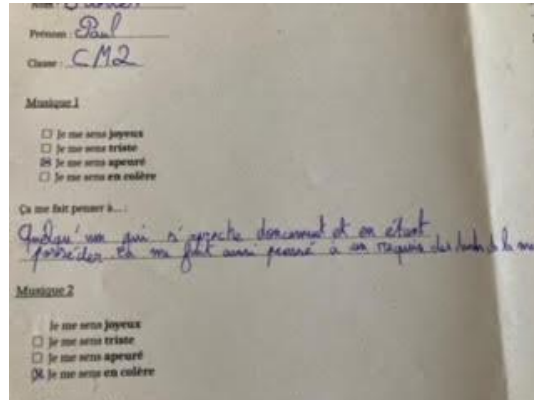 Prénom : Paul
Classe : CM2
Musique 1
☐ Je me sens joyeux
☐ Je me sens triste
☒ Je me sens apeuré
☐ Je me sens en colère
Ça me fait penser à... :
Quelqu'un qui s'aproche doucement et en étant
posséder ça me fait aussi pensé à un requin des de la
Musique 2
Je me sens joyeux
☐ Je me sens triste
☐ Je me sens apeuré
☒ Je me sens en colère